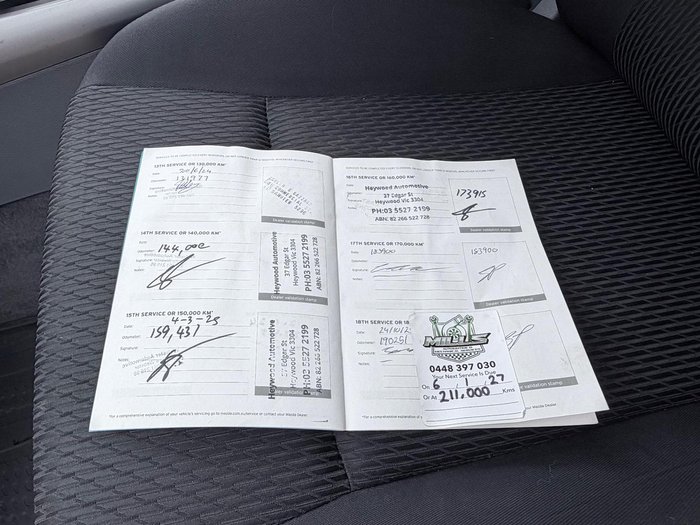 13TH SERVICE OR 130,000 KM*
Date:
Odometer: 131977
Signature:
Notes:
Dealer validation stamp
14TH SERVICE OR 140,000 KM*
Date:
Odometer: 144,000
Signature:
Notes:
Heywood Automotive
37 Edgar St
Heywood Vic 3304
PH:03 5527 2199
ABN: 82 266 522 728
Dealer validation stamp
15TH SERVICE OR 150,000 KM*
Date: 4-3-25
Odometer: 159,431
Signature:
Notes:
Heywood Automotive
37 Edgar St
Heywood Vic 3304
PH:03 5527 2199
ABN: 82 266 522 728
Dealer validation stamp
*For a comprehensive explanation of your vehicle's servicing go to mazda.com.au/service or contact your Mazda Dealer.
16TH SERVICE OR 160,000 KM*
Heywood Automotive
37 Edgar St
Heywood Vic 3304
PH:03 5527 2199
ABN: 82 266 522 728
173915
Dealer validation stamp
17TH SERVICE OR 170,000 KM*
Date: 183900
Odometer:
Signature:
Notes:
183900
Dealer validation stamp
18TH SERVICE OR 18
Date:
Odometer: 190251
Signature:
Notes:
dealer validation stamp
MILLS
0448 397 030
Your Next Service is Due
On 6 . 1 . 27
Or At 211,000 Kms